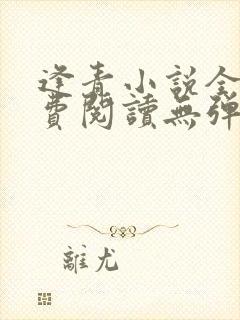 逢青小說全
費閱讀無彈
離尤